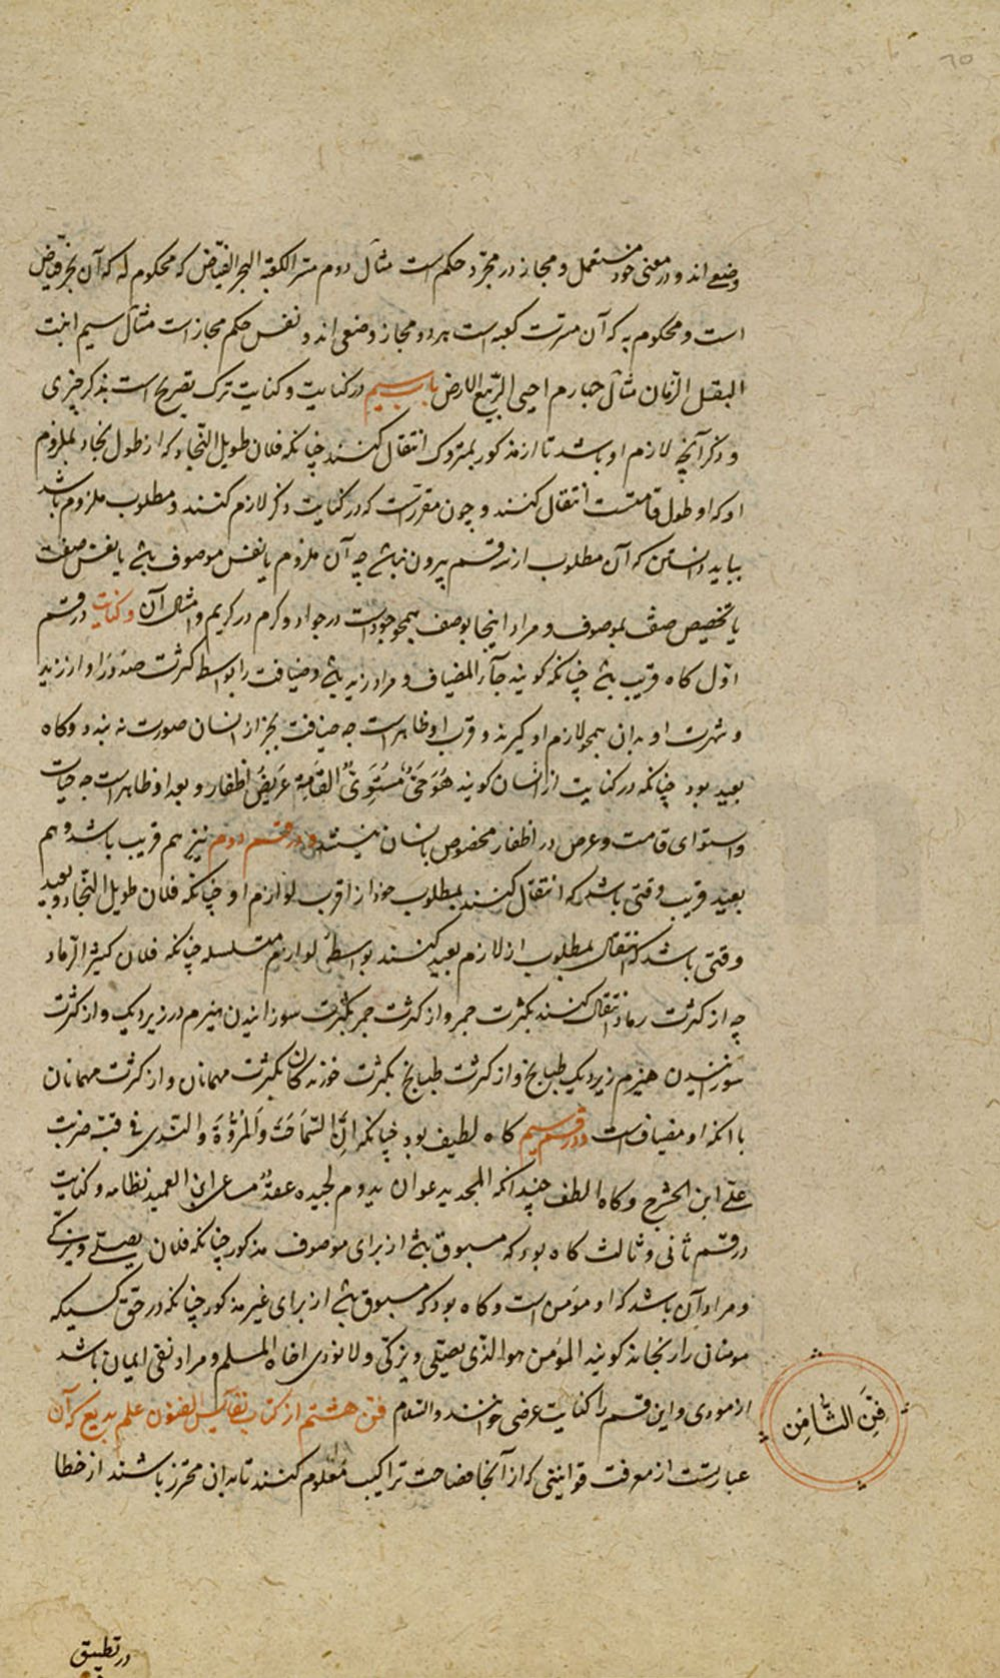 وضعی‌اند و در معنی خود مستعمل و مجاز در مجرد حکم است مثال دوم سر الکعبة البحر الفیاض که محکوم له که آن بحر فیاض
است و محکوم به که آن مسرت کعبه است هر دو مجاز وضعی‌اند و نفس حکم مجاز است مثال سیم انبت
البقل الزمان مثال چهارم احیی الربیع الارض باب سیم در کنایت و کنایت ترک تصریح است بذکر چیزی
و ذکر آنچه لازم او باشد تا از مذکور بمتروک انتقال کنند چنانکه فلان طویل النجاد که از طول نجاد بملزوم
او که او طول قامتست انتقال کنند و چون مقررست که در کنایت ذکر لازم کنند و مطلوب ملزوم باشد
بباید دانستن که آن مطلوب از سه قسم بیرون نباشد چه آن ملزوم یا نفس موصوف باشد یا نفس صفت
یا تخصیص صفت بموصوف و مراد اینجا بوصف همچو جودست در جواد و کرم در کریم و امثال آن و کنایت در قسم
اول کاه قریب باشد چنانکه کویند جآء المضیاف و مراد زید باشد و ضیافت را بواسطه کثرت صدور او از زید
و شهرت او بدان همچو لازم او کیرند و قرب او ظاهرست چه ضیافت بجز از انسان صورت نبندد و کاه
بعید بود چنانکه در کنایت از انسان کویند هُوَ حَیٌّ مُسْتَوِیُ القَامَةِ عَرِیضُ اظفار و بعد او ظاهرست چه حیات
و استوای قامت و عرض در اظفار مخصوص بانسان نیستند و در قسم دوم نیز هم قریب باشد و هم
بعید قریب وقتی باشد که انتقال کنند بمطلوب خود از اقرب لوازم او چنانکه فلان طویل النجاد و بعید
وقتی باشد که انتقال بمطلوب از لازم بعید کنند بواسطهٔ لوازم متسلسله چنانکه فلان کثیر الرماد
چه از کثرت رماد انتقال کنند بکثرت جمر و از کثرت جمر بکثرت سوزانیدن هیزم در زیر دیک و از کثرت
سوزانیدن هیزم زیر دیک بکثرت طبایخ و از کثرت طبایخ بکثرت خورندکان بکثرت مهمانان و از کثرت مهمانان
با آنکه او مضیافست و در قسم سیم کاه لطیف بود چنانکه اِنَّ السَّمَاحَةَ وَالمُرُوَّةَ والندی فی قبة ضربت
علی ابن الحشرج و کاه الطف چنانکه المجد یدعو ان یدوم لجیده عقدٌ مساعی ابن العمید نظامه و کنایت
در قسم ثانی و ثالث کاه بود که مسبوق باشد از برای موصوف مذکور چنانکه فلان یصلی و یزکی
و مراد آن باشد که او مؤمن است و کاه بود که مسبوق باشد از برای غیر مذکور چنانکه در حق کسیکه
مومنان را رنجاند کویند المؤمن هو الذی یصلی و یزکی و لا یوذی اخاه المسلم و مراد نفی ایمان باشد
از موذی و این قسم را کنایت عرضی خوانند والسلام فن هشتم از کتاب نفایس الفنون علم بدیع که آن
عبارتست از معرفت قوانینی که از آنجا فصاحت تراکیب معلوم کنند تا بدان محترز باشند از خطا
فن الثامن
در تطبیق